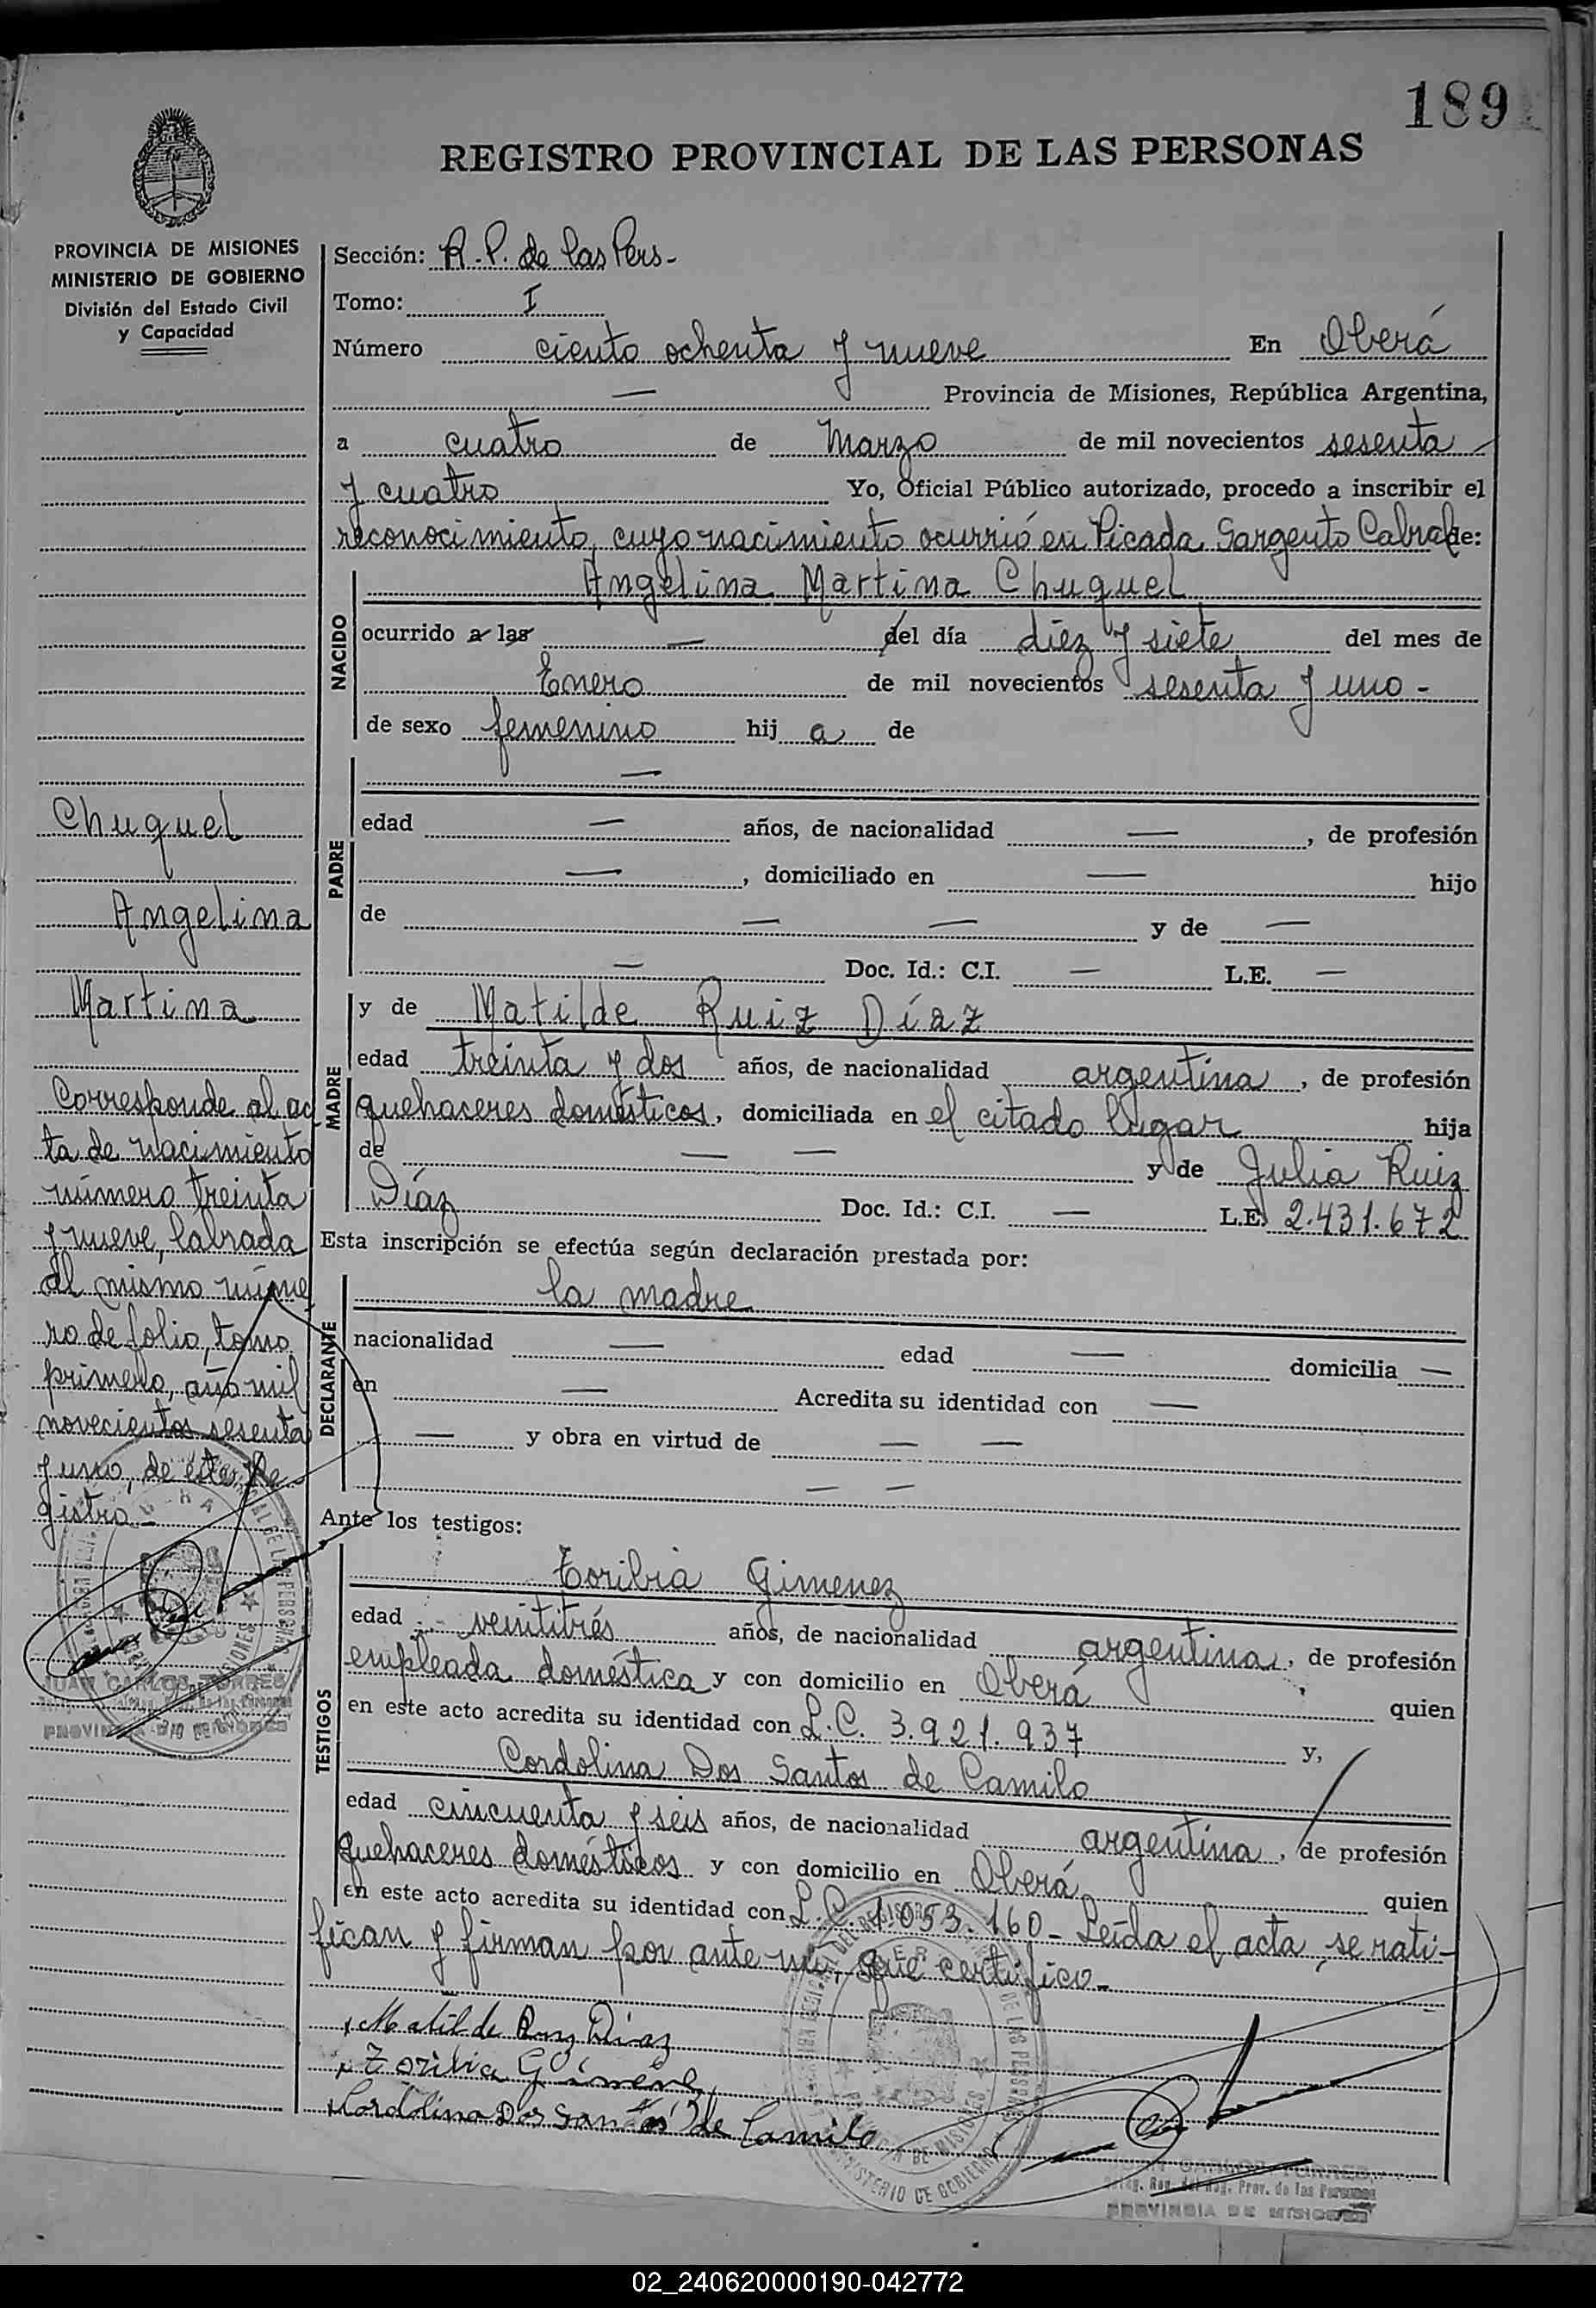 189
REGISTRO PROVINCIAL DE LAS PERSONAS
PROVINCIA DE MISIONES
MINISTERIO DE GOBIERNO
División del Estado Civil
y Capacidad
Sección: R.P. de las Pers-
Tomo: I
Número ciento ochenta y nueve En Oberá
— Provincia de Misiones, República Argentina,
a cuatro de Marzo de mil novecientos sesenta
y cuatro Yo, Oficial Público autorizado, procedo a inscribir el
reconocimiento, cuyo nacimiento ocurrió en Picada Sargento Cabral de:
NACIDO
Angelina Martina Chuquel
ocurrido a las — del día diez y siete del mes de
Enero de mil novecientos sesenta y uno -
de sexo femenino hij a de
PADRE
—
edad — años, de nacionalidad —, de profesión
—, domiciliado en — hijo
de — — y de —
— Doc. Id.: C.I. — L.E. —
MADRE
y de Matilde Ruiz Díaz
edad treinta y dos años, de nacionalidad argentina, de profesión
quehaceres domésticos, domiciliada en el citado lugar hija
de — — y de Julia Ruiz
Díaz Doc. Id.: C.I. — L.E. 2.431.672
Esta inscripción se efectúa según declaración prestada por:
DECLARANTE
la madre
nacionalidad — edad — domicilia —
en — Acredita su identidad con —
— y obra en virtud de — —
— —
Ante los testigos:
TESTIGOS
Toribia Gimenez
edad - veintitrés años, de nacionalidad argentina, de profesión
empleada doméstica y con domicilio en Oberá quien
en este acto acredita su identidad con L.C. 3.921.937 y,
Cordolina Dos Santos de Camilo
edad cincuenta y seis años, de nacionalidad argentina, de profesión
quehaceres domésticos y con domicilio en Oberá quien
en este acto acredita su identidad con L.C. 1.053.160 - Leída el acta, se rati-
fican y firman por ante mí, que certifico.-
Matilde Ruiz Diaz
Toribia Gimenez
Cordolina Dos Santos de Camilo
Chuquel
Angelina
Martina
Corresponde al ac
ta de nacimiento
número treinta
y nueve, labrada
al mismo núme
ro de folio, tomo
primero, año mil
novecientos sesenta
y uno, de este Re-
gistro.-
JUAN CARLOS TORRES
PROVINCIA DE MISIONES
MINISTERIO DE GOBIERNO
PROVINCIA DE MISIONES
JUAN CARLOS TORRES
Deleg. Reg. del Reg. Prov. de las Personas
PROVINCIA DE MISIONES
02_240620000190-042772